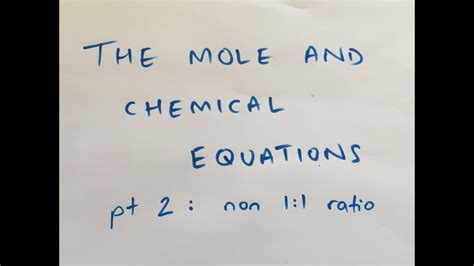 THE MOLE AND
CHEMICAL
EQUATIONS
pt 2 : non 1:1 ratio